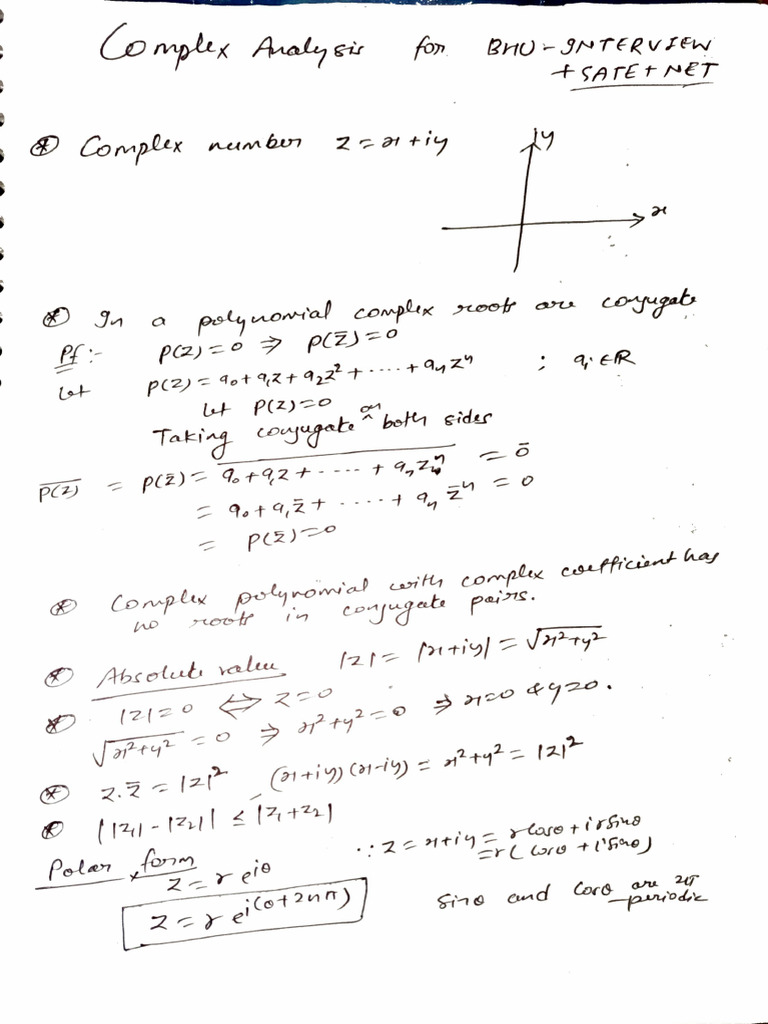 Complex Analysis for BHU-INTERVIEW
+ GATE + NET
⊛ Complex number z = x + iy
y
x
⊛ In a polynomial complex roots are conjugate
Pf :- P(z) = 0 ⇒ P(z̄) = 0
Let P(z) = a₀ + a₁z + a₂z² + ..... + aₙzⁿ ; aᵢ ∈ ℝ
Let P(z) = 0
Taking conjugate on both sides
\overline{P(z)} = P(z̄) = \overline{a₀ + a₁z + ..... + aₙzⁿ} = 0̄
= a₀ + a₁z̄ + ..... + aₙz̄ⁿ = 0
= P(z̄) = 0
⊛ Complex polynomial with complex coefficient has
no roots in conjugate pairs.
⊛ Absolute value |z| = |x + iy| = √(x² + y²)
⊛ |z| = 0 ⇔ z = 0
√(x² + y²) = 0 ⇒ x² + y² = 0 ⇒ x = 0 & y = 0.
⊛ z.z̄ = |z|² (x + iy)(x - iy) = x² + y² = |z|²
⊛ ||z₁| - |z₂|| ≤ |z₁ + z₂|
Polar form ∵ z = x + iy = r cosθ + i r sinθ
= r(cosθ + i sinθ)
z = r e^{iθ}
z = r e^{i(θ + 2nπ)}
sinθ and cosθ are 2π
periodic